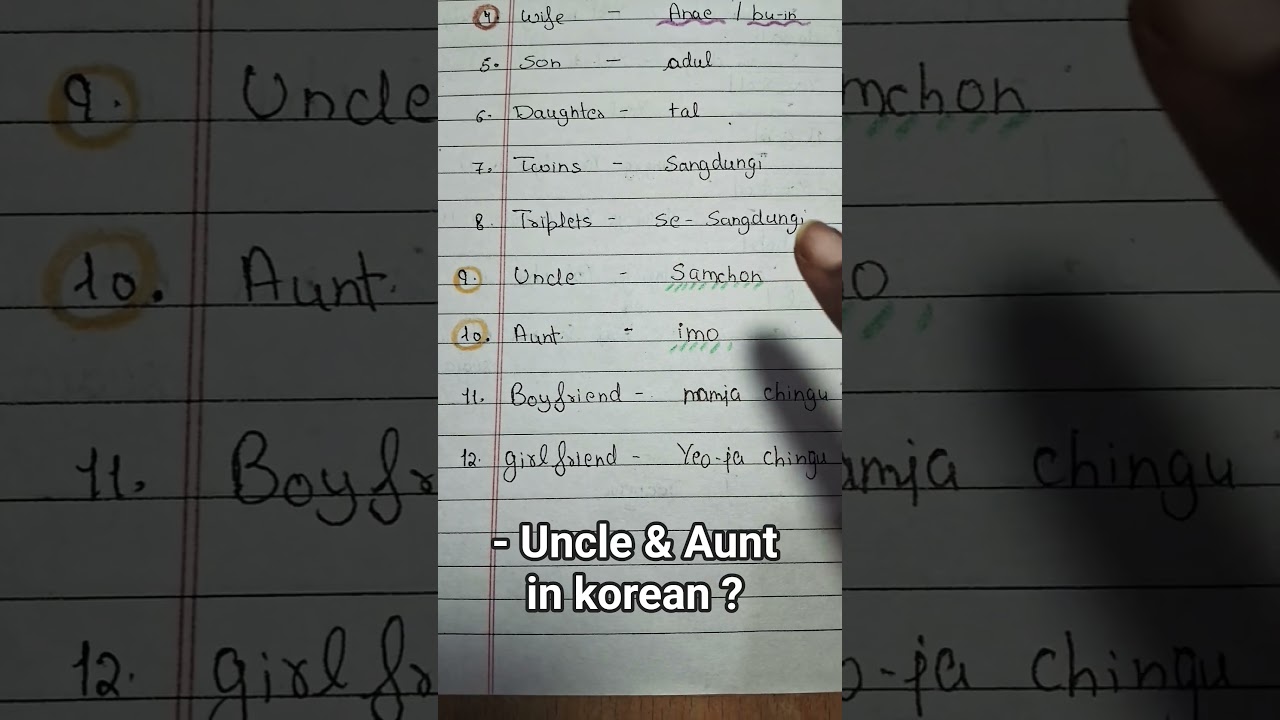 4 Wife - Anae / bu-in
5. Son - adul
6. Daughter - tal
7. Twins - Sangdungi
8. Triplets - se - Sangdungi
9. Uncle - Samchon
10. Aunt. - imo
11. Boyfriend - namja chingu
12. girlfriend - Yeo-ja chingu
- Uncle & Aunt
in korean ?